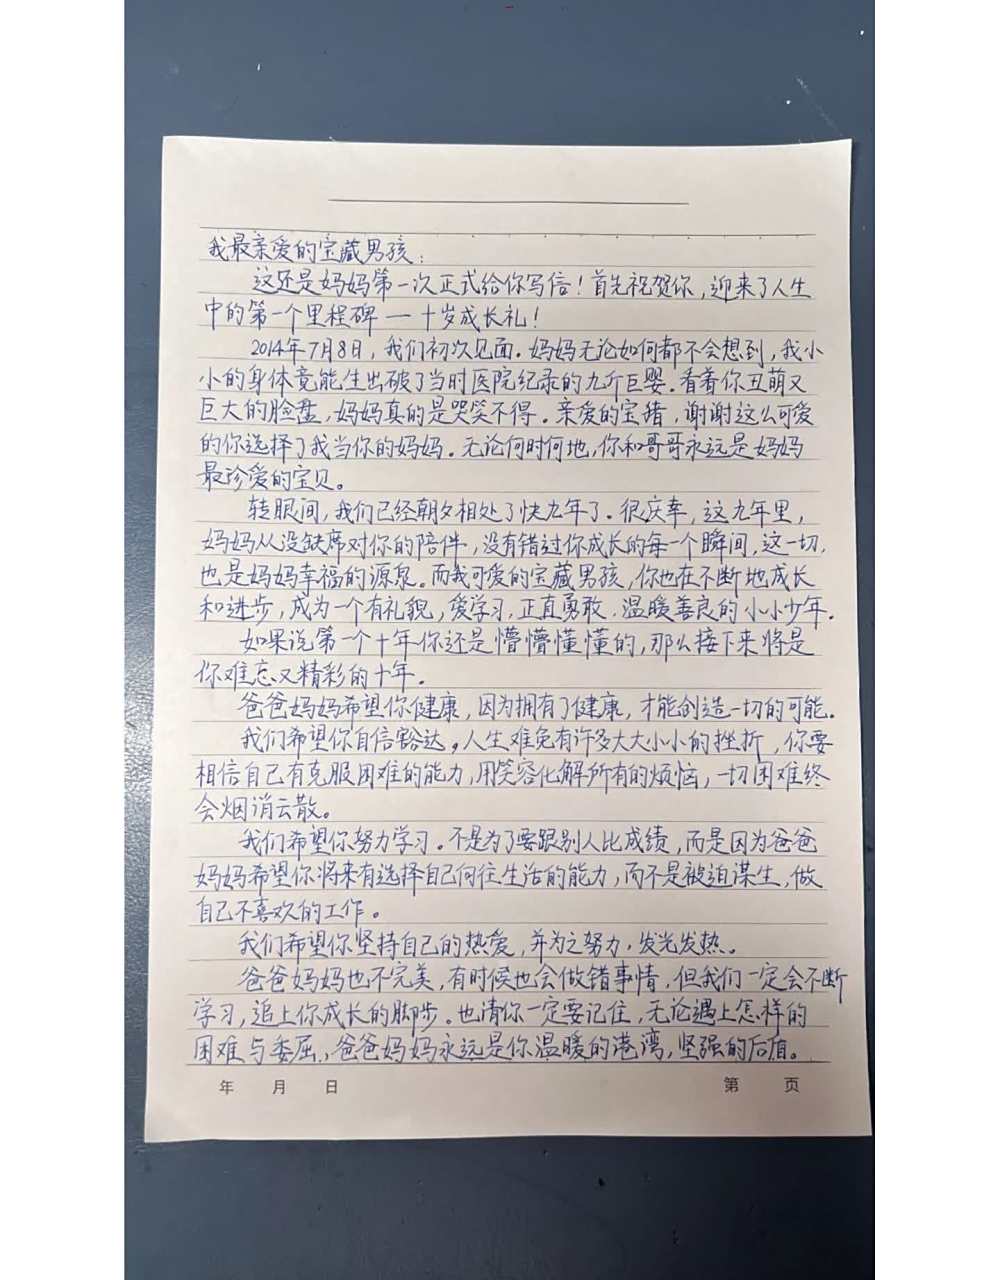 我最亲爱的宝藏男孩：
这还是妈妈第一次正式给你写信！首先祝贺你，迎来了人生
中的第一个里程碑一十岁成长礼！
2014年7月8日，我们初次见面.妈妈无论如何都不会想到，我小
小的身体竟能生出破了当时医院纪录的九斤巨婴.看着你丑萌又
巨大的脸盘，妈妈真的是哭笑不得。亲爱的宝猪，谢谢这么可爱
的你选择了我当你的妈妈.无论何时何地,你和哥哥永远是妈妈
最珍爱的宝贝。
转眼间，我们已经朝夕相处了快九年了.很庆幸，这九年里，
妈妈从没缺席对你的陪伴，没有错过你成长的每一个瞬间，这一切，
也是妈妈幸福的源泉。而我可爱的宝藏男孩，你也在不断地成长
和进步，成为一个有礼貌，爱学习，正直勇敢，温暖善良的小小少年.
如果说第一个十年你还是懵懵懂懂的，那么接下来将是
你难忘又精彩的十年.
爸爸妈妈希望你健康，因为拥有了健康，才能创造一切的可能.
我们希望你自信豁达。人生难免有许多大大小小的挫折，你要
相信自己有克服困难的能力,用笑容化解所有的烦恼，一切困难终
会烟消云散。
我们希望你努力学习.不是为了要跟别人比成绩，而是因为爸爸
妈妈希望你将来有选择自己向往生活的能力，而不是被迫谋生，做
自己不喜欢的工作。
我们希望你坚持自己的热爱，并为之努力，发光发热。
爸爸妈妈也不完美，有时候也会做错事情，但我们一定会不断
学习，追上你成长的脚步。也请你一定要记住，无论遇上怎样的
困难与委屈，爸爸妈妈永远是你温暖的港湾，坚强的后盾。
年 月 日 第 页